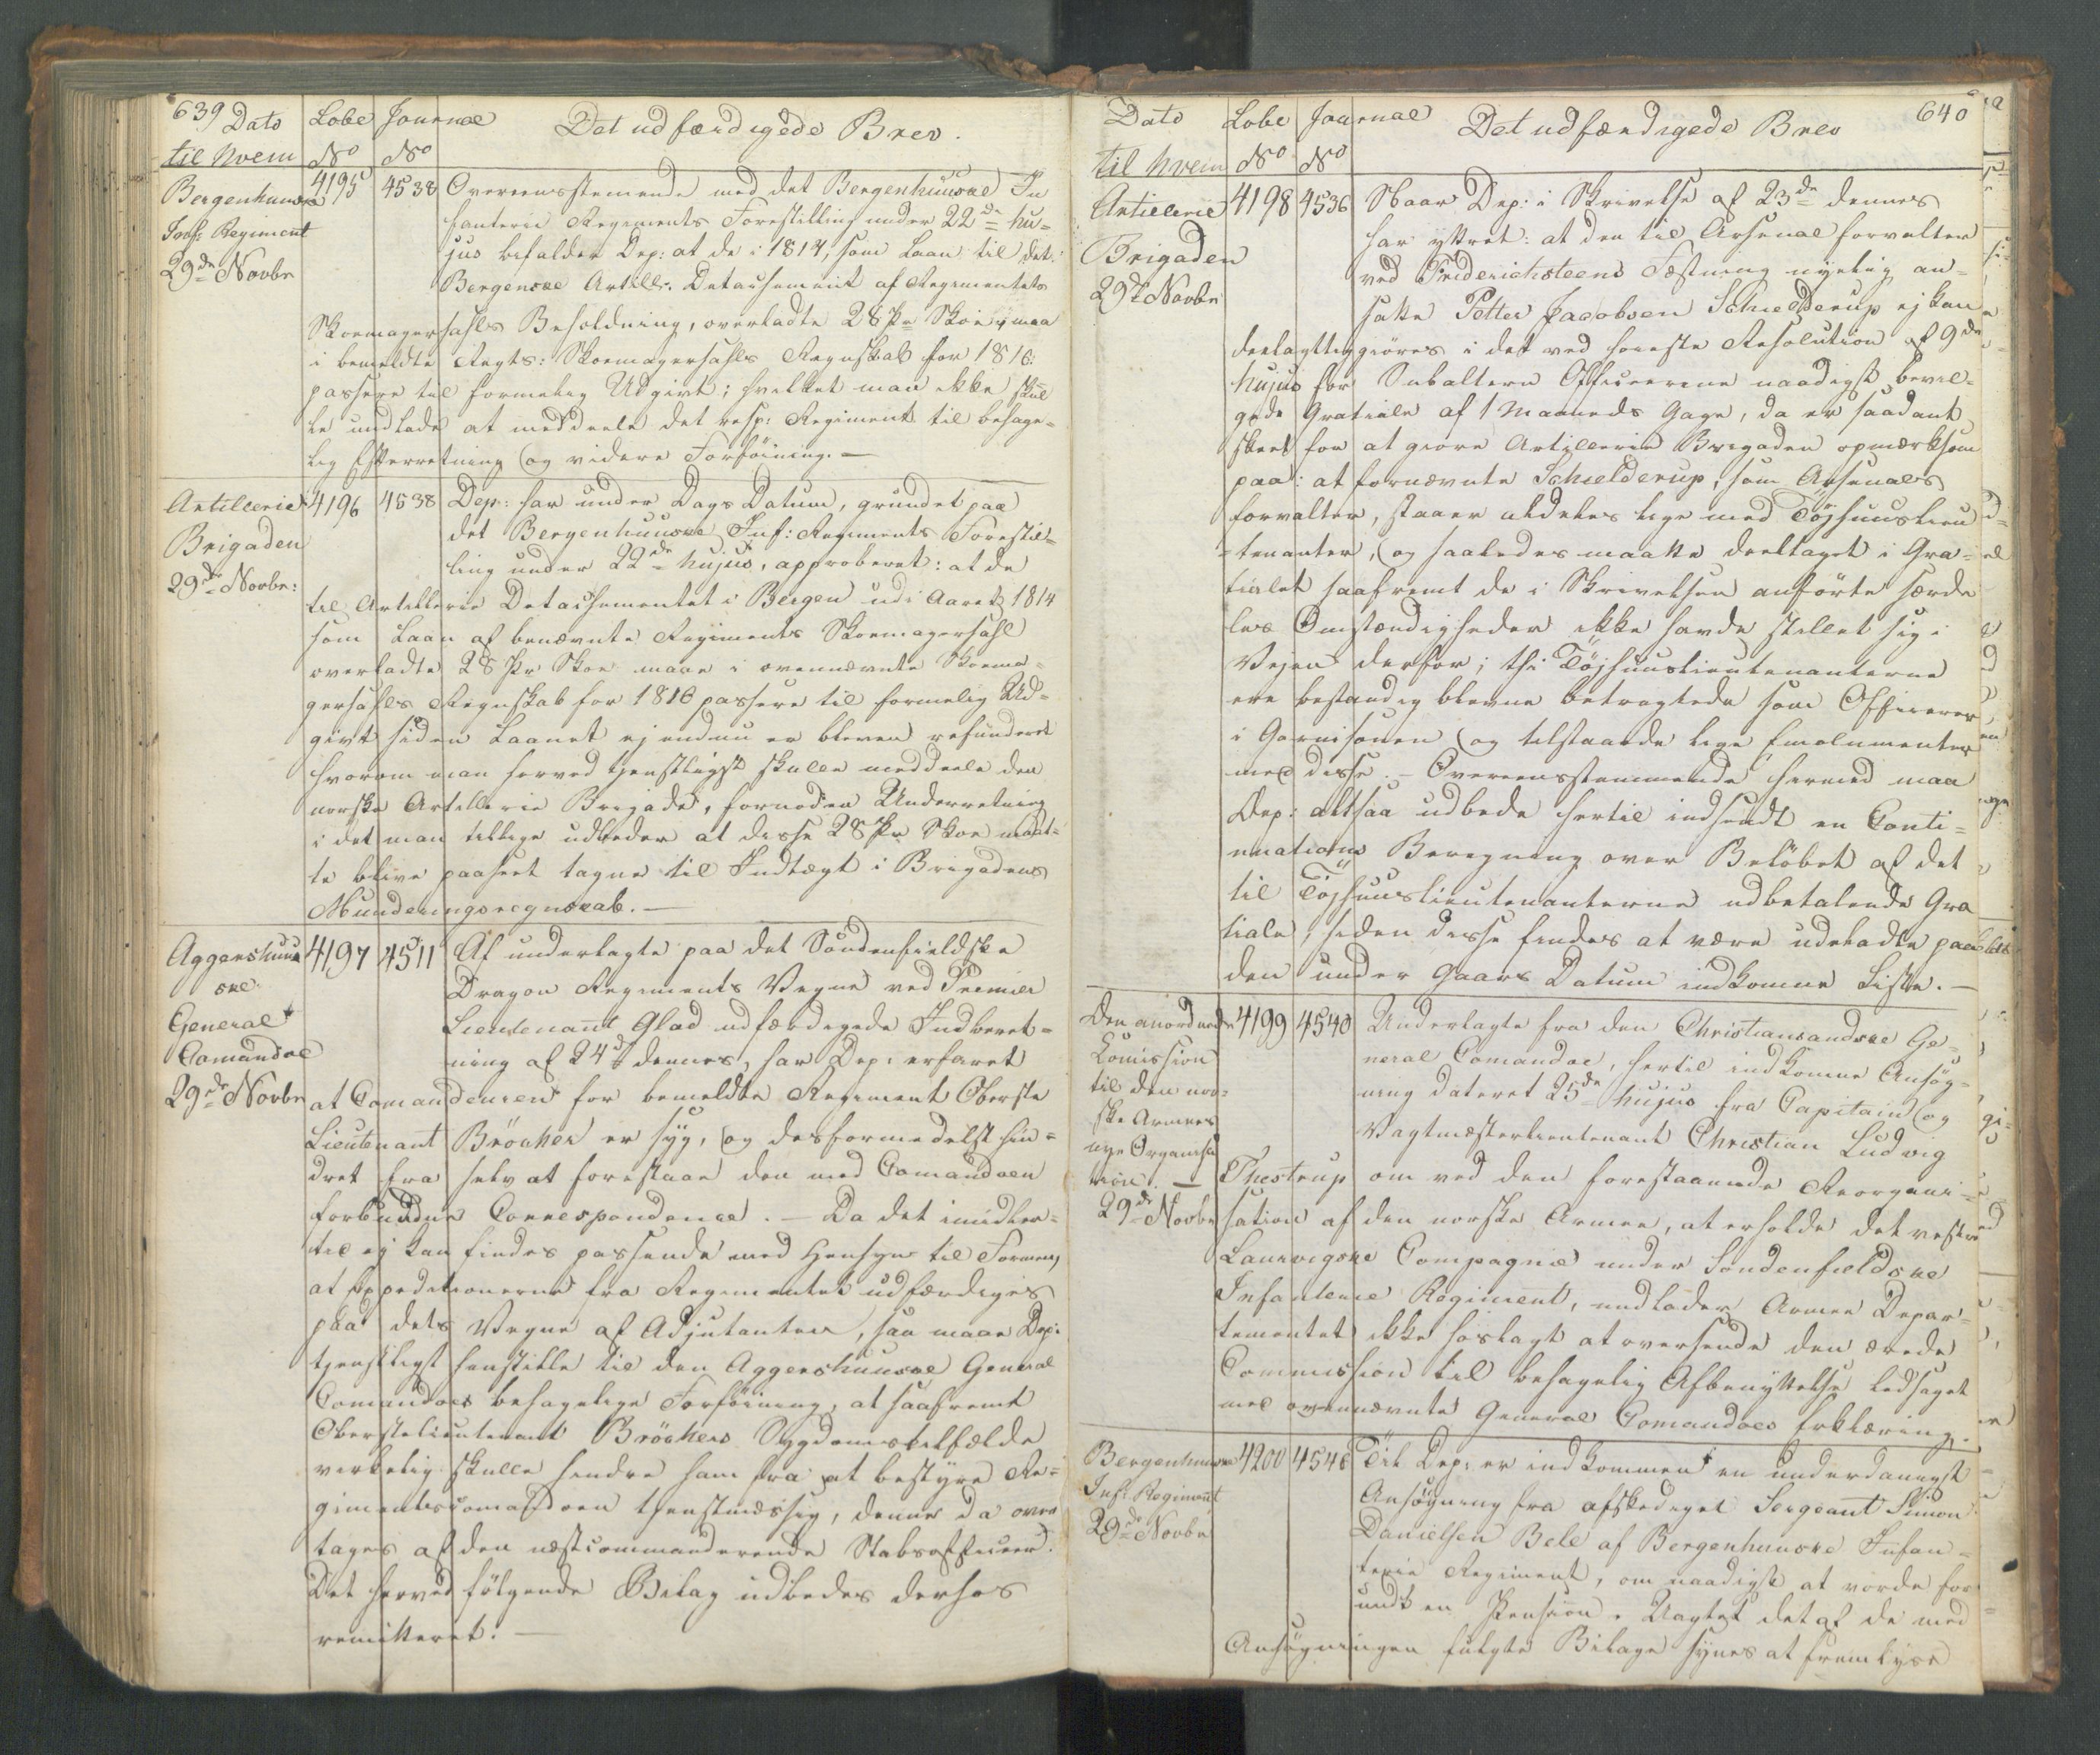 639 Dato
til hvem
Lobe No
Journal No
Det udfærdigede Brev.
Bergenhuuske
Inf: Regiment
29de Novbr
4195
4538
Overeensstemende med det Bergenhuuske In
fanterie Regiments Forestilling under 22de hu=
jus befalder Dep: at de i 1814, som Laan til det
Bergenske Artill: Detachement af Regimentets
Skoemagersahls Beholdning, overladte 28 Pr Skoe maa
i bemeldte Regts: Skoemagersahls Regnskab for 1816
passere til formelig Udgivt; hvilket man ikke skul
le undlade at meddeele det resp: Regiment til behage=
lig Efterretning og videre Forföining. —
Artillerie
Brigaden
29de Novbr:
4196
4538
Dep: har under Dags Datum, grundet paa
det Bergenhuuske Inf: Regiments Forestil=
ling under 22de hujus, approberet: at de
til Artillerie Detachementet i Bergen udi Aaret 1814
som Laan af benævnte Regiments Skoemagersahl
overladte 28 Pr Skoe maae i ovennævnte Skoema=
gersahls Regnskab for 1816 passere til formelig Ud=
givt siden Laanet ej endnu er bleven refunderet
hvorom man herved tjenstligst skulle meddeele den
norske Artillerie Brigade, fornöden Underretning
i det man tillige udbeder at disse 28 Pr Skoe maat=
te blive paaseet tagne til Indtægt i Brigadens
Munderingsregnskab. —
Aggershuus
ske
General
Comandoe
29de Novbr
4197
4511
Af underlagte paa det Söndenfieldske
Dragon Regiments Vegne ved Premier
Lieutenant Glad udfærdigede Indberet=
ning af 24de dennes, har Dep: erfaret
at Comandeuren for bemeldte Regiment Oberste
Lieutenant Bröcker er syg, og desformedelst hin=
dret fra selv at forestaae den med Comandoen
forbundne Correspondence. — Da det imidler=
tid ej kan findes passende med Hensyn til Formen,
at Expeditionerne fra Regimentet udfærdiges
paa dets Vegne af Adjutanten, saa maae Dep:
tjenstligst henstille til den Aggershuuske General
Comandoes behagelige Forföining, at saafremt
Oberstelieutenant Bröckers Sygdomstilfælde
virkelig skulle hindre ham fra at bestyre Re=
gimentscomandoen tjenstmæssig, denne da over
tages af den næstcommanderende Stabsofficeer.
Det herved fölgende Bilag udbedes derhos
remitteret. —
Dato
til hvem
Lobe No
Journal No
Det udfærdigede Brev
640
Artillerie
Brigaden
29de Novbr
4198
4536
Naar Dep: i Skrivelse af 23de dennes
har yttret: at den til Arsenalforvalter
ved Friderichsteens Fæstning nyelig an=
satte Petter Jacobsen Schielderup ej kan
deelagtiggiöres i det ved höieste Resolution af 9de
hujus for Subaltern Officererne naadigst bevil=
gede Gratiale af 1 Maaneds Gage, da er saadant
skeet for at giöre Artillerie Brigaden opmærksom
paa: at fornævnte Schielderup, som Arsenals
forvalter, staaer aldeles lige med Töjhuuslieu
=tenanter, og saaledes maatte deeltaget i Gra=
tialet saafremt de i Skrivelsen anförte særde
les Omstændigheder ikke havde stillet sig i
Vejen derfor; thi Töjhuuslieutenanterne
ere bestandig blevne betragtede som Officerer
i Garnisonen og tilstaaede lige Emolumenter
med disse. — Overeensstemmende hermed maa
Dep: altsaa udbede hertil indsendt en Conti=
nuations Beregning over Belöbet af det
til Töjhuuslieutenanterne udbetalende Gra
tiale, siden disse findes at være udeladte paa
den under Gaars Datum indkomne Liste. —
Den anordnede
Comission
til den nor=
ske Armees
nye Organisa
tion. —
29de Novbr
4199
4540
Underlagte fra den Christiansandske Ge=
neral Comandoe, hertil indkomne Ansög=
ning dateret 25de hujus fra Capitain og
Vagtmesterlieutenant Christian Ludvig
Thestrup om ved den forestaaende Reorgani=
sation af den norske Armee, at erholde det vestre
Laurvigske Compagnie under Söndenfieldske
Infanterie Regiment, undlader Armee Depar=
tementet ikke hoslagt at oversende den ærede
Commission til behagelig Afbenyttelse ledsaget
med ovennævnte General Comandoes Erklæring.
Bergenhuuske
Inf: Regiment
29de Novbr
4200
4546
Til Dep: er indkommen en underdanigst
Ansögning fra afskediget Sergeant Simon
Danielsen Bele af Bergenhuuske Infan=
terie Regiment, om naadigst at vorde for
undt en Pension. Uagtet det af de med
Ansögningen fulgte Bilage synes at fremlyse